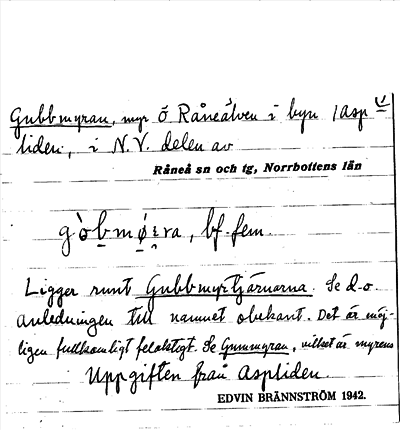 Gubbmyran, myr Ö Råneälven i byn Asp
liden, i N.V. delen av
Råneå sn och tg, Norrbottens län
bf. fem.
Ligger runt Gubbmyrtjärnarna. Se d.o.
anledningen till namnet obekant. Det är möj-
ligen fullkomligt felaktigt. Se Gummyran, vilket är myrens
Uppgiften från Aspliden.
EDVIN BRÄNNSTRÖM 1942.